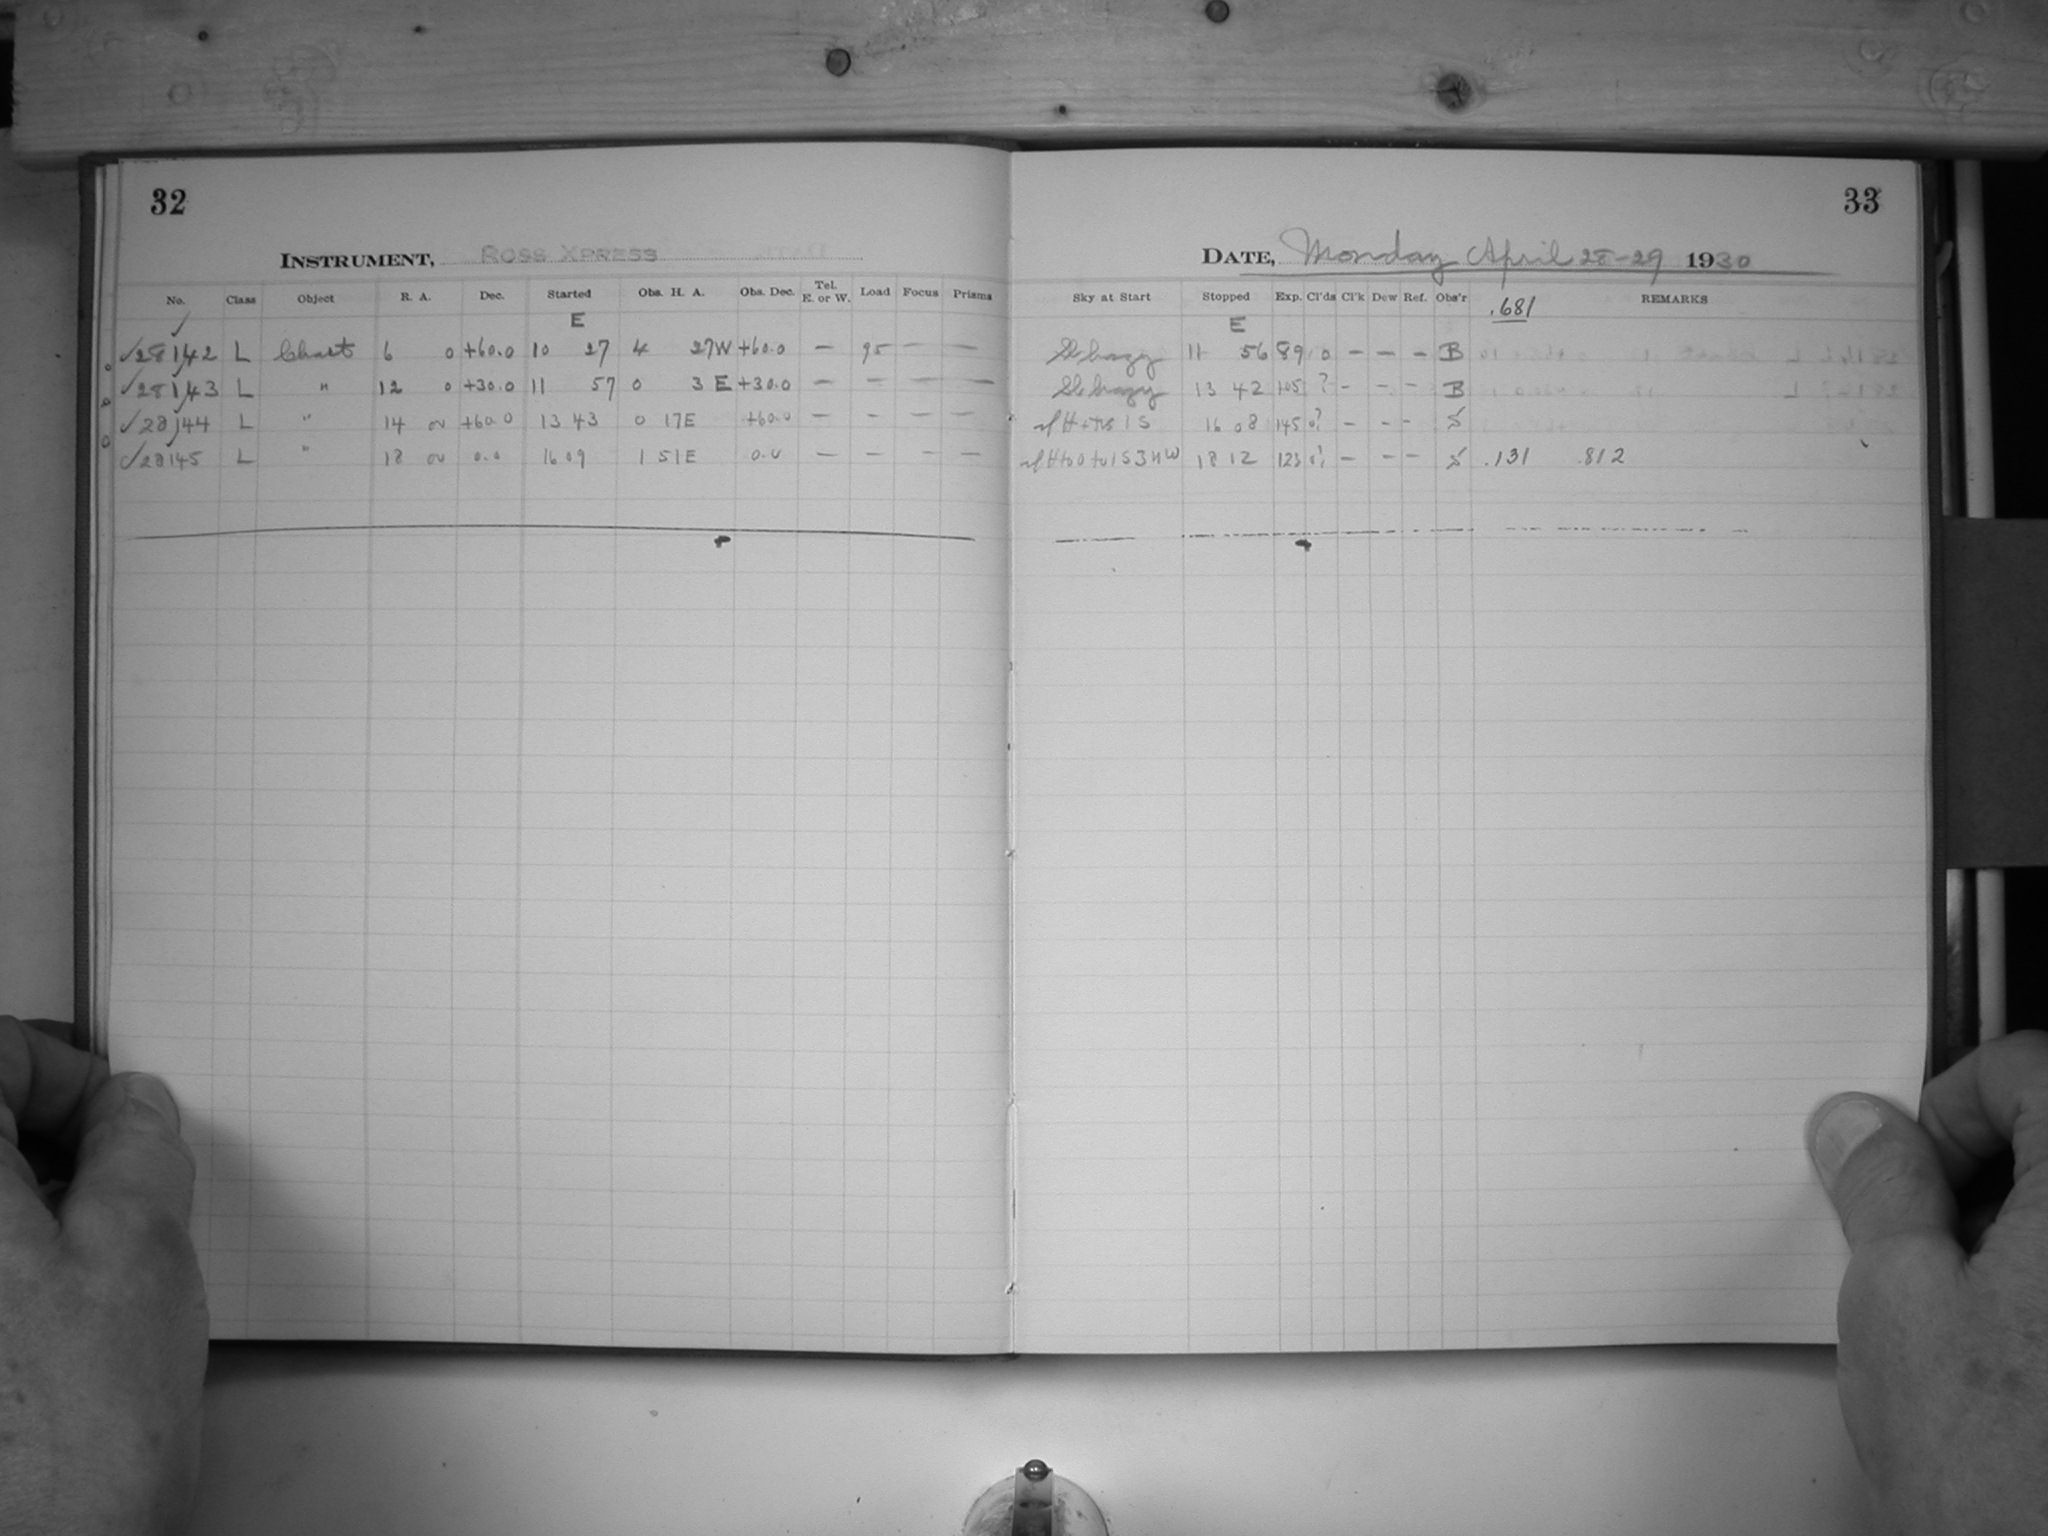 32
INSTRUMENT, ROSS XPRESS
No. Class Object R. A. Dec. Started Obs. H. A. Obs. Dec. Tel. E. or W. Load Focus Prisms
E
✓28142 L Chart 6 0 +60.0 10 27 4 27W +60.0 — 95 — —
✓28143 L " 12 0 +30.0 11 57 0 3 E +30.0 — — — —
✓28144 L " 14 +60.0 13 43 0 17E +60.0 — — — —
✓28145 L " 18 0.0 16 09 1 51E 0.0 — — — —
33
DATE, Monday April 28-29 1930
Sky at Start Stopped Exp. Cl'ds Cl'k Dew Ref. Obs'r REMARKS
.681
E
Sl hazy 11 56 89 0 — — — B
Sl hazy 13 42 105 ? - - - B
1 S 16 08 145 0? — - - S
18 12 123 0? — - - S .131 .812